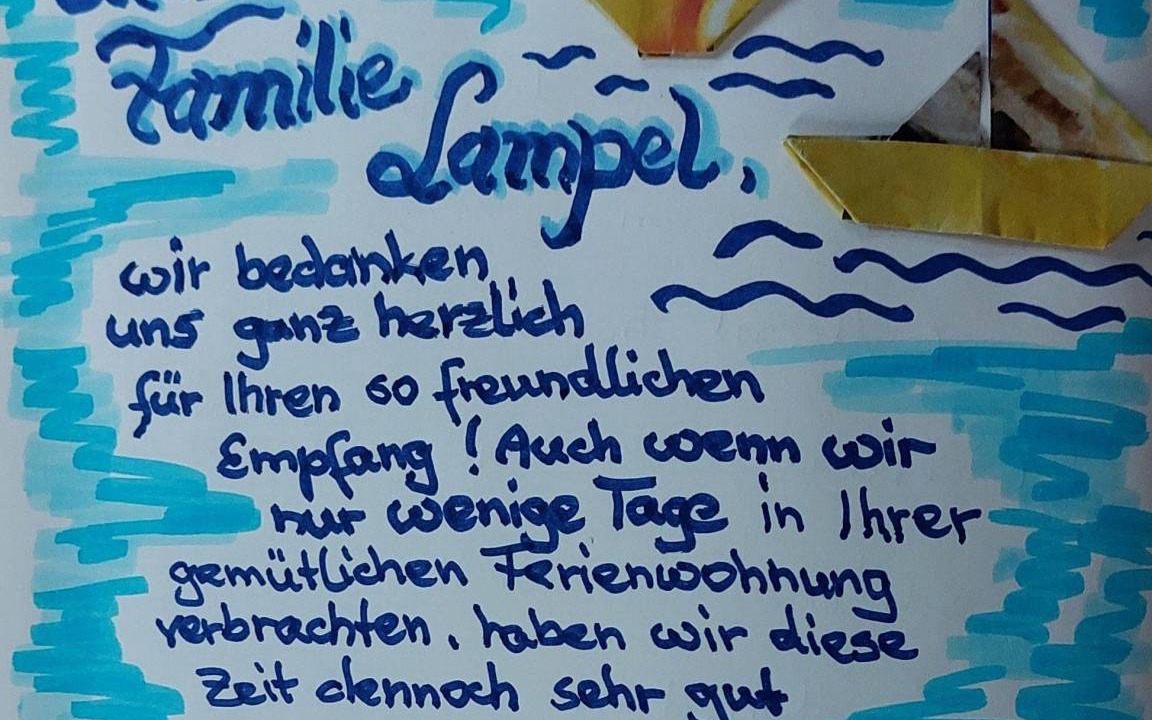 Familie
Lampel,
wir bedanken
uns ganz herzlich
für Ihren so freundlichen
Empfang! Auch wenn wir
nur wenige Tage in Ihrer
gemütlichen Ferienwohnung
verbrachten, haben wir diese
Zeit dennoch sehr gut